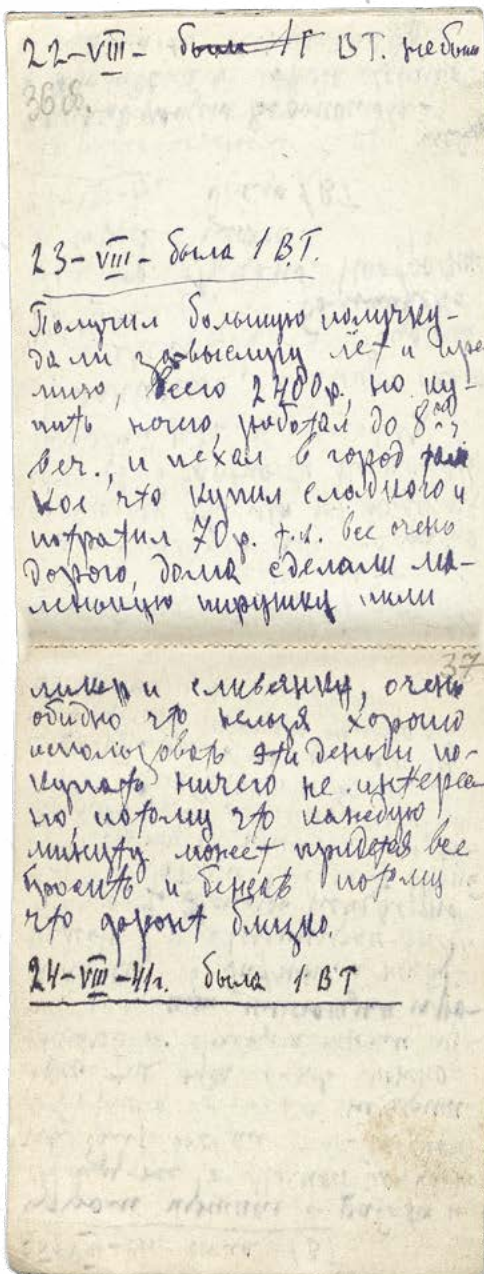 22-VIII- ~~была 1~~ ВТ. не был
36 об.
23-VIII- была 1 ВТ.
Получил большую получку-
дали за выслугу лет и пре
мию, всего 2400р, но ку-
пить нечего, работал до 8
веч., и поехал в город
кое что купил сладкого и
потратил 70р. т.к. все очень
дорого, дома сделали ма-
ленькую пирушку пили
37
ликер и сливянку, очень
обидно что нельзя хорошо
использовать эти деньги по-
купать ничего не интерес
но, потому что каждую
минуту может придется все
бросить и бежать потому
что фронт близко.
24-VIII-41г. была 1 ВТ